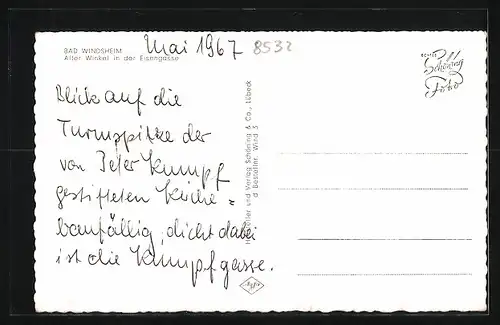 BAD WINDSHEIM
Alter Winkel in der Eisengasse
Mai 1967
8532
Blick auf die
Turmspitze der
von Peter Kumpf
gestifteten Kirche =
baufällig, dicht dabei
ist die Kumpfgasse.
Hersteller und Verlag Schöning & Co., Lübeck
d Bestellnr. Wind 3
ECHTES
Schöning
Foto
Agfa